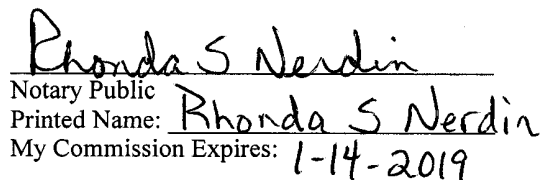 Rhonda S Nerdin
Notary Public
Printed Name: Rhonda S Nerdin
My Commission Expires: 1-14-2019